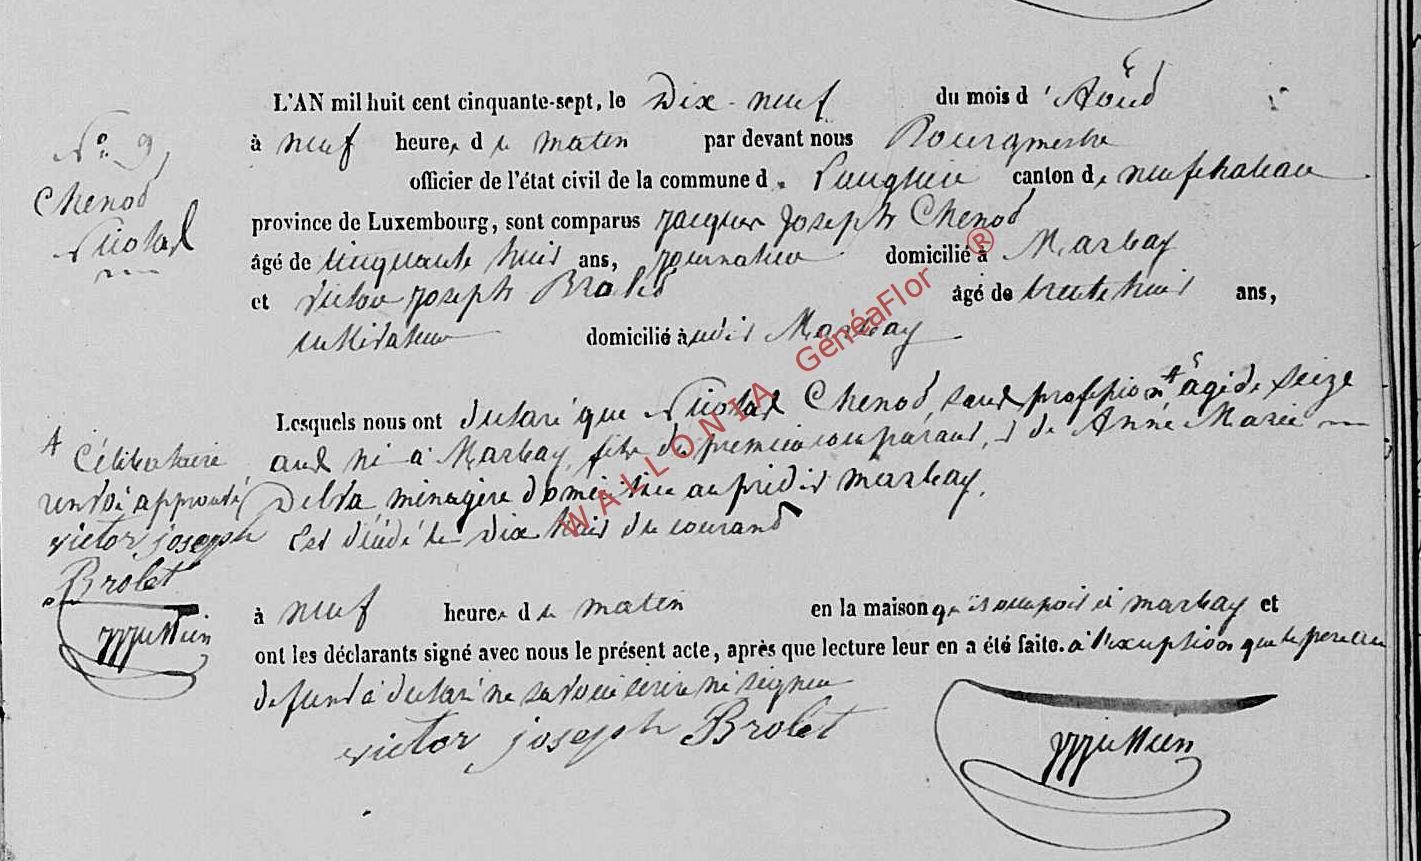 L'AN mil huit cent cinquante-sept, le Dix-neuf du mois d'Aoûd
à neuf heures du matin par devant nous Bourgmestre
officier de l'état civil de la commune de canton de neufchateau
province de Luxembourg, sont comparus Jacques Joseph Chenod
âgé de cinquante huit ans, journalier domicilié à Marbay
et Victor Joseph Broled âgé de trente huit ans,
cultivateur domicilié à udit Marbay
Lesquels nous ont déclaré que Nicolas Chenod, sans profession + âgé de seize
ans né à Marbay, fils du premier comparant, et de Anne Marie
Delva ménagère domiciliée au prédit marbay.
Est décédé le dix huit du courand
à neuf heures du matin en la maison qu'il occupoit à marbay et
ont les déclarants signé avec nous le présent acte, après que lecture leur en a été faite. à l'exception que le père du
defund a déclaré ne savoir écrire ni signer
victor joseph Brolet
No. 9,
Chenod
Nicolas
+ Célibataire
renvoi approuvé
victor joseph
Brolet
WALLONIA GenéaFlor ®